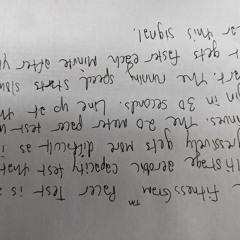 FitnessGram™ Pacer Test is a
ltistage aerobic capacity test that
gressively gets more difficult as i
inues. The 20 meter pacer test w
gin in 30 seconds. Line up at th
art. The running speed starts slow
t gets faster each minute after y
ar this signal.